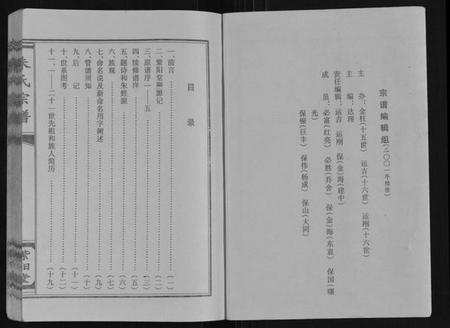 宗谱编辑组(二〇〇一年续修)
主办:金柱(十五世) 运吉(十六世) 运刚(十六世)
主编:达理
责任编辑:运吉 运刚 保(金)海(建中)
成员:必富(红亮) 必胜(舟舍) 保(金)海(东衷) 保国(曙光)
保储(巨丰) 保伟(杨成) 保山(大同)
目录
一、前言 (一)
二、紫阳堂渊源记 (二)
三、原谱序一——五 (三)
四、续修谱序 (四)
五、题诗和朱姓源 (五)
六、族规 (六)
七、命名说及新命名用字阐述 (七)
八、管谱须知 (八)
九、后记 (九)
十、世系图考 (十一)
十一、一——二十一世先祖和族人简历 (十九)
朱氏宗谱
紫阳堂